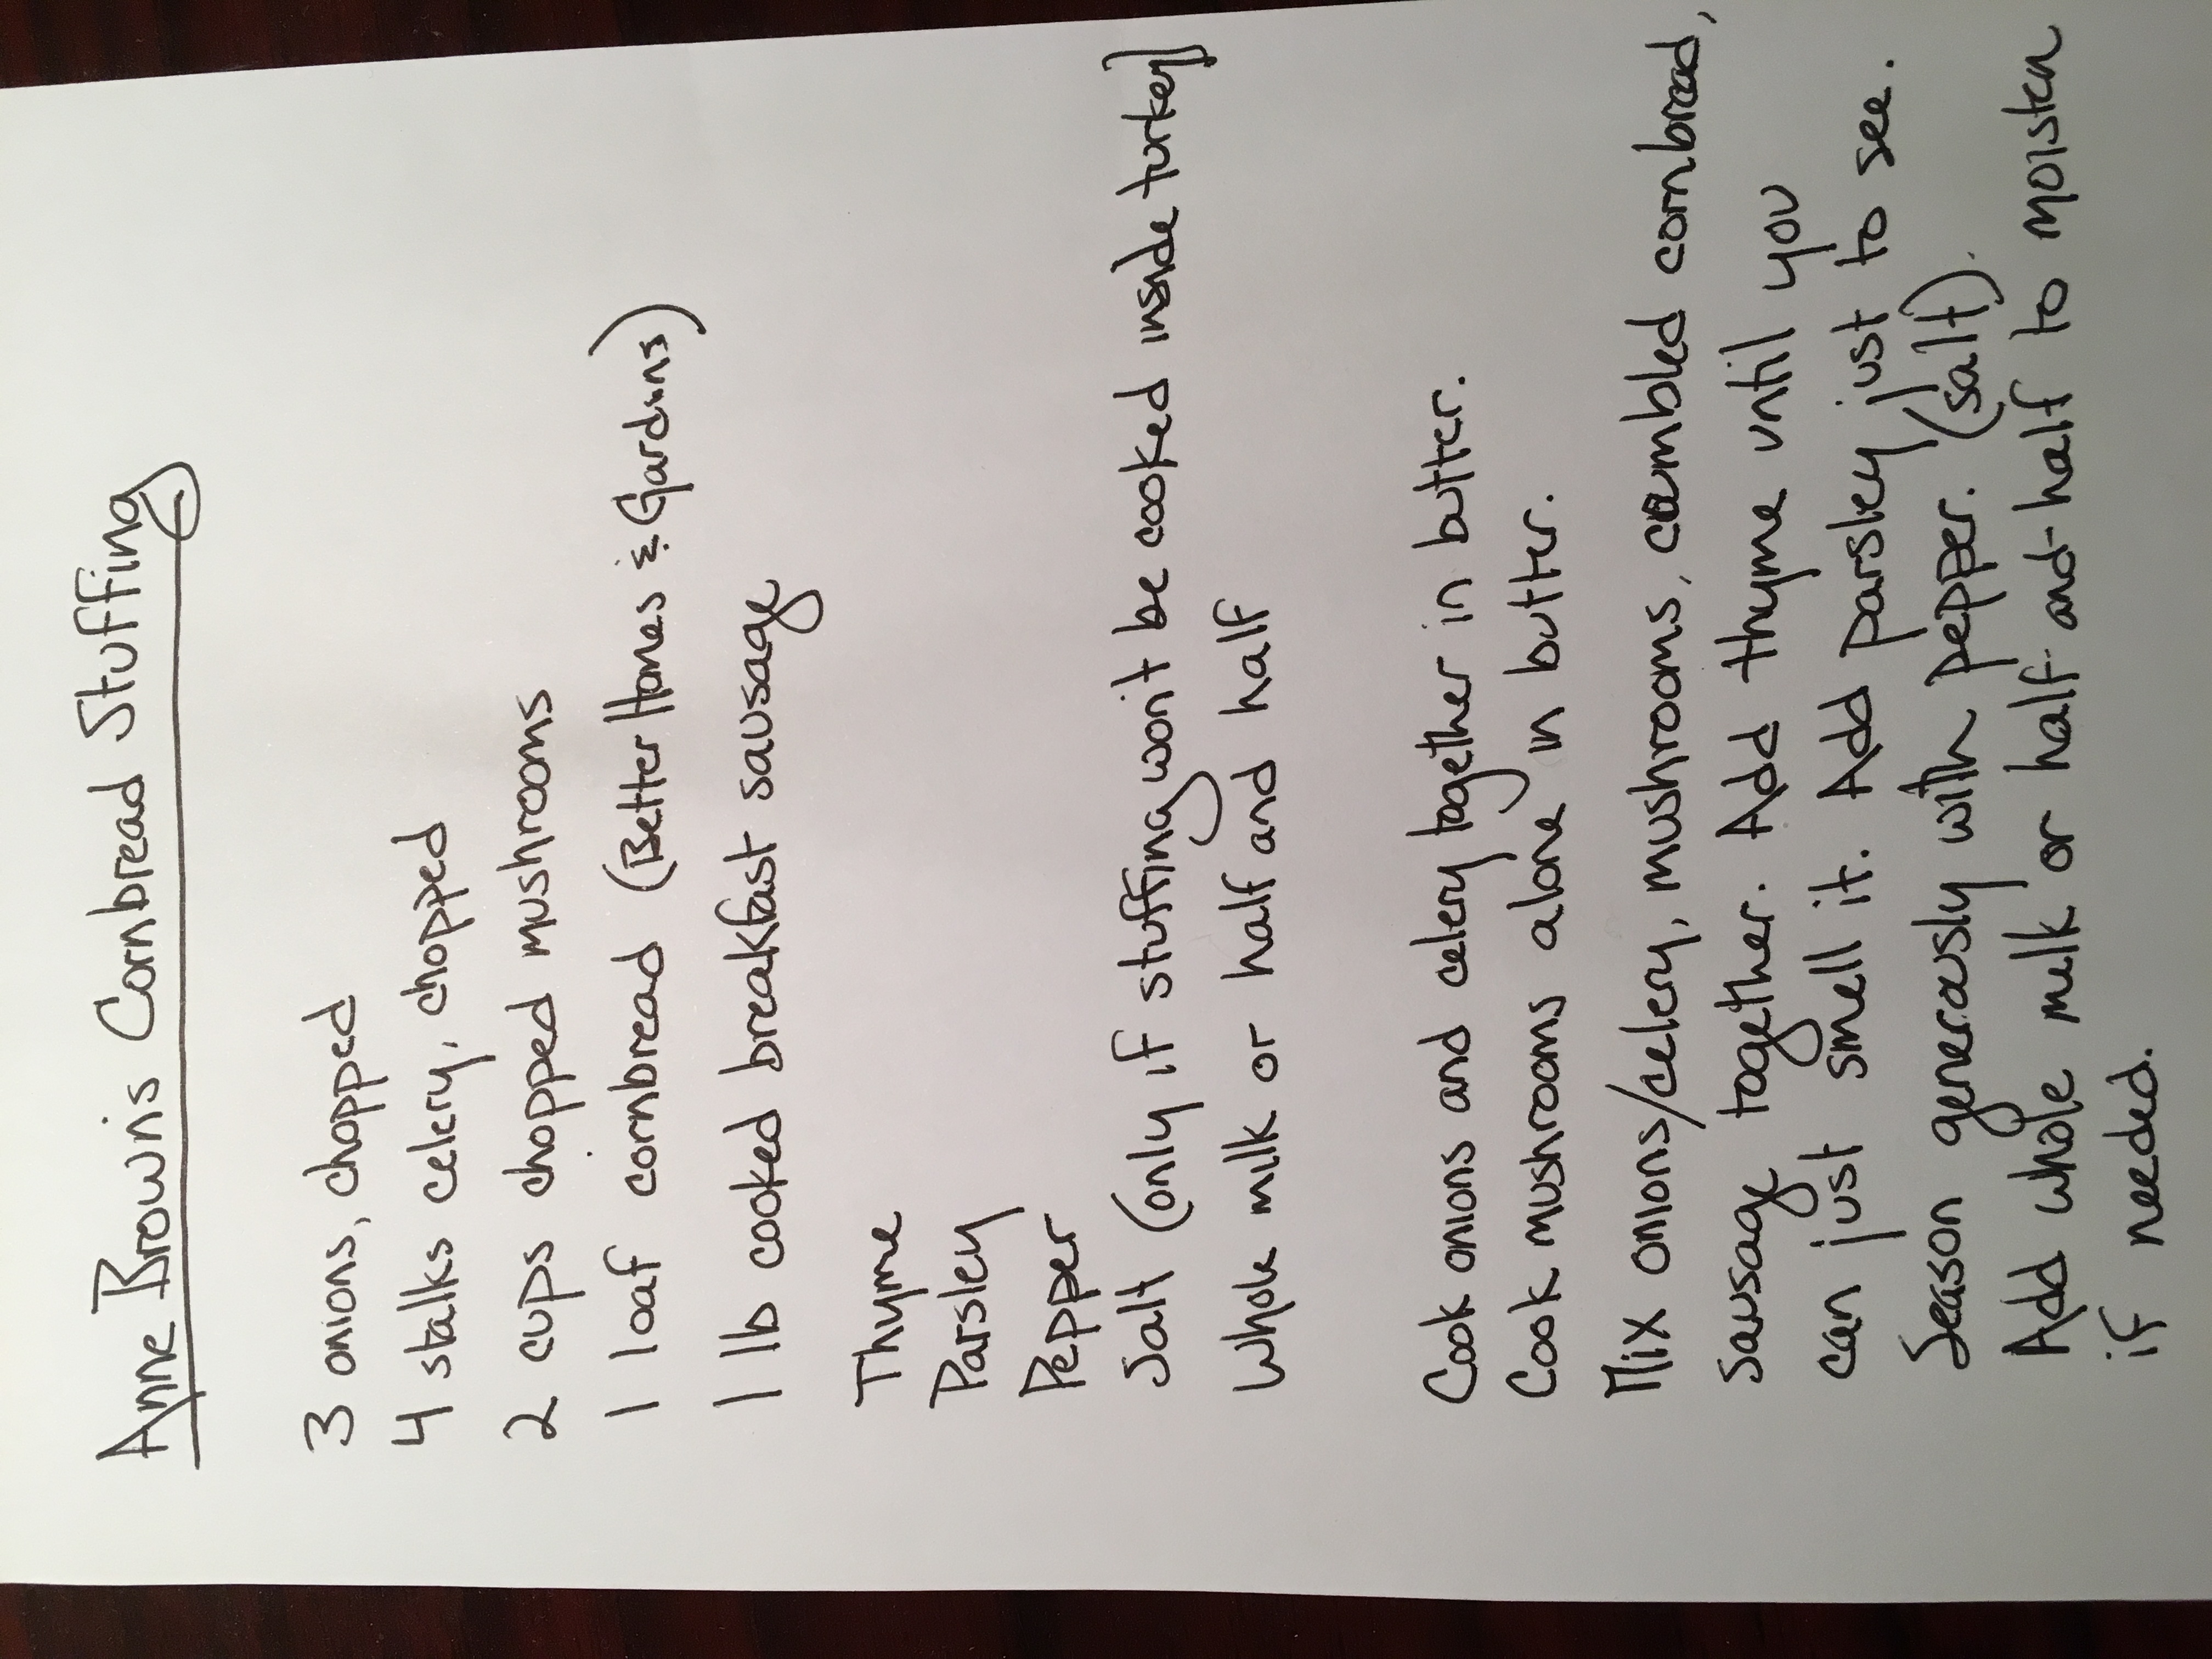 Anne Brown's Cornbread Stuffing
3 onions, chopped
4 stalks celery, chopped
2 cups chopped mushrooms
1 loaf cornbread (Better Homes & Gardens)
1 lb cooked breakfast sausage
Thyme
Parsley
Pepper
Salt (only if stuffing won't be cooked inside turkey)
Whole milk or half and half
Cook onions and celery together in butter.
Cook mushrooms alone in butter.
Mix onions/celery, mushrooms, crumbled cornbread,
sausage together. Add thyme until you
can just smell it. Add parsley just to see.
Season generously with pepper. (salt).
Add whole milk or half-and-half to moisten
if needed.